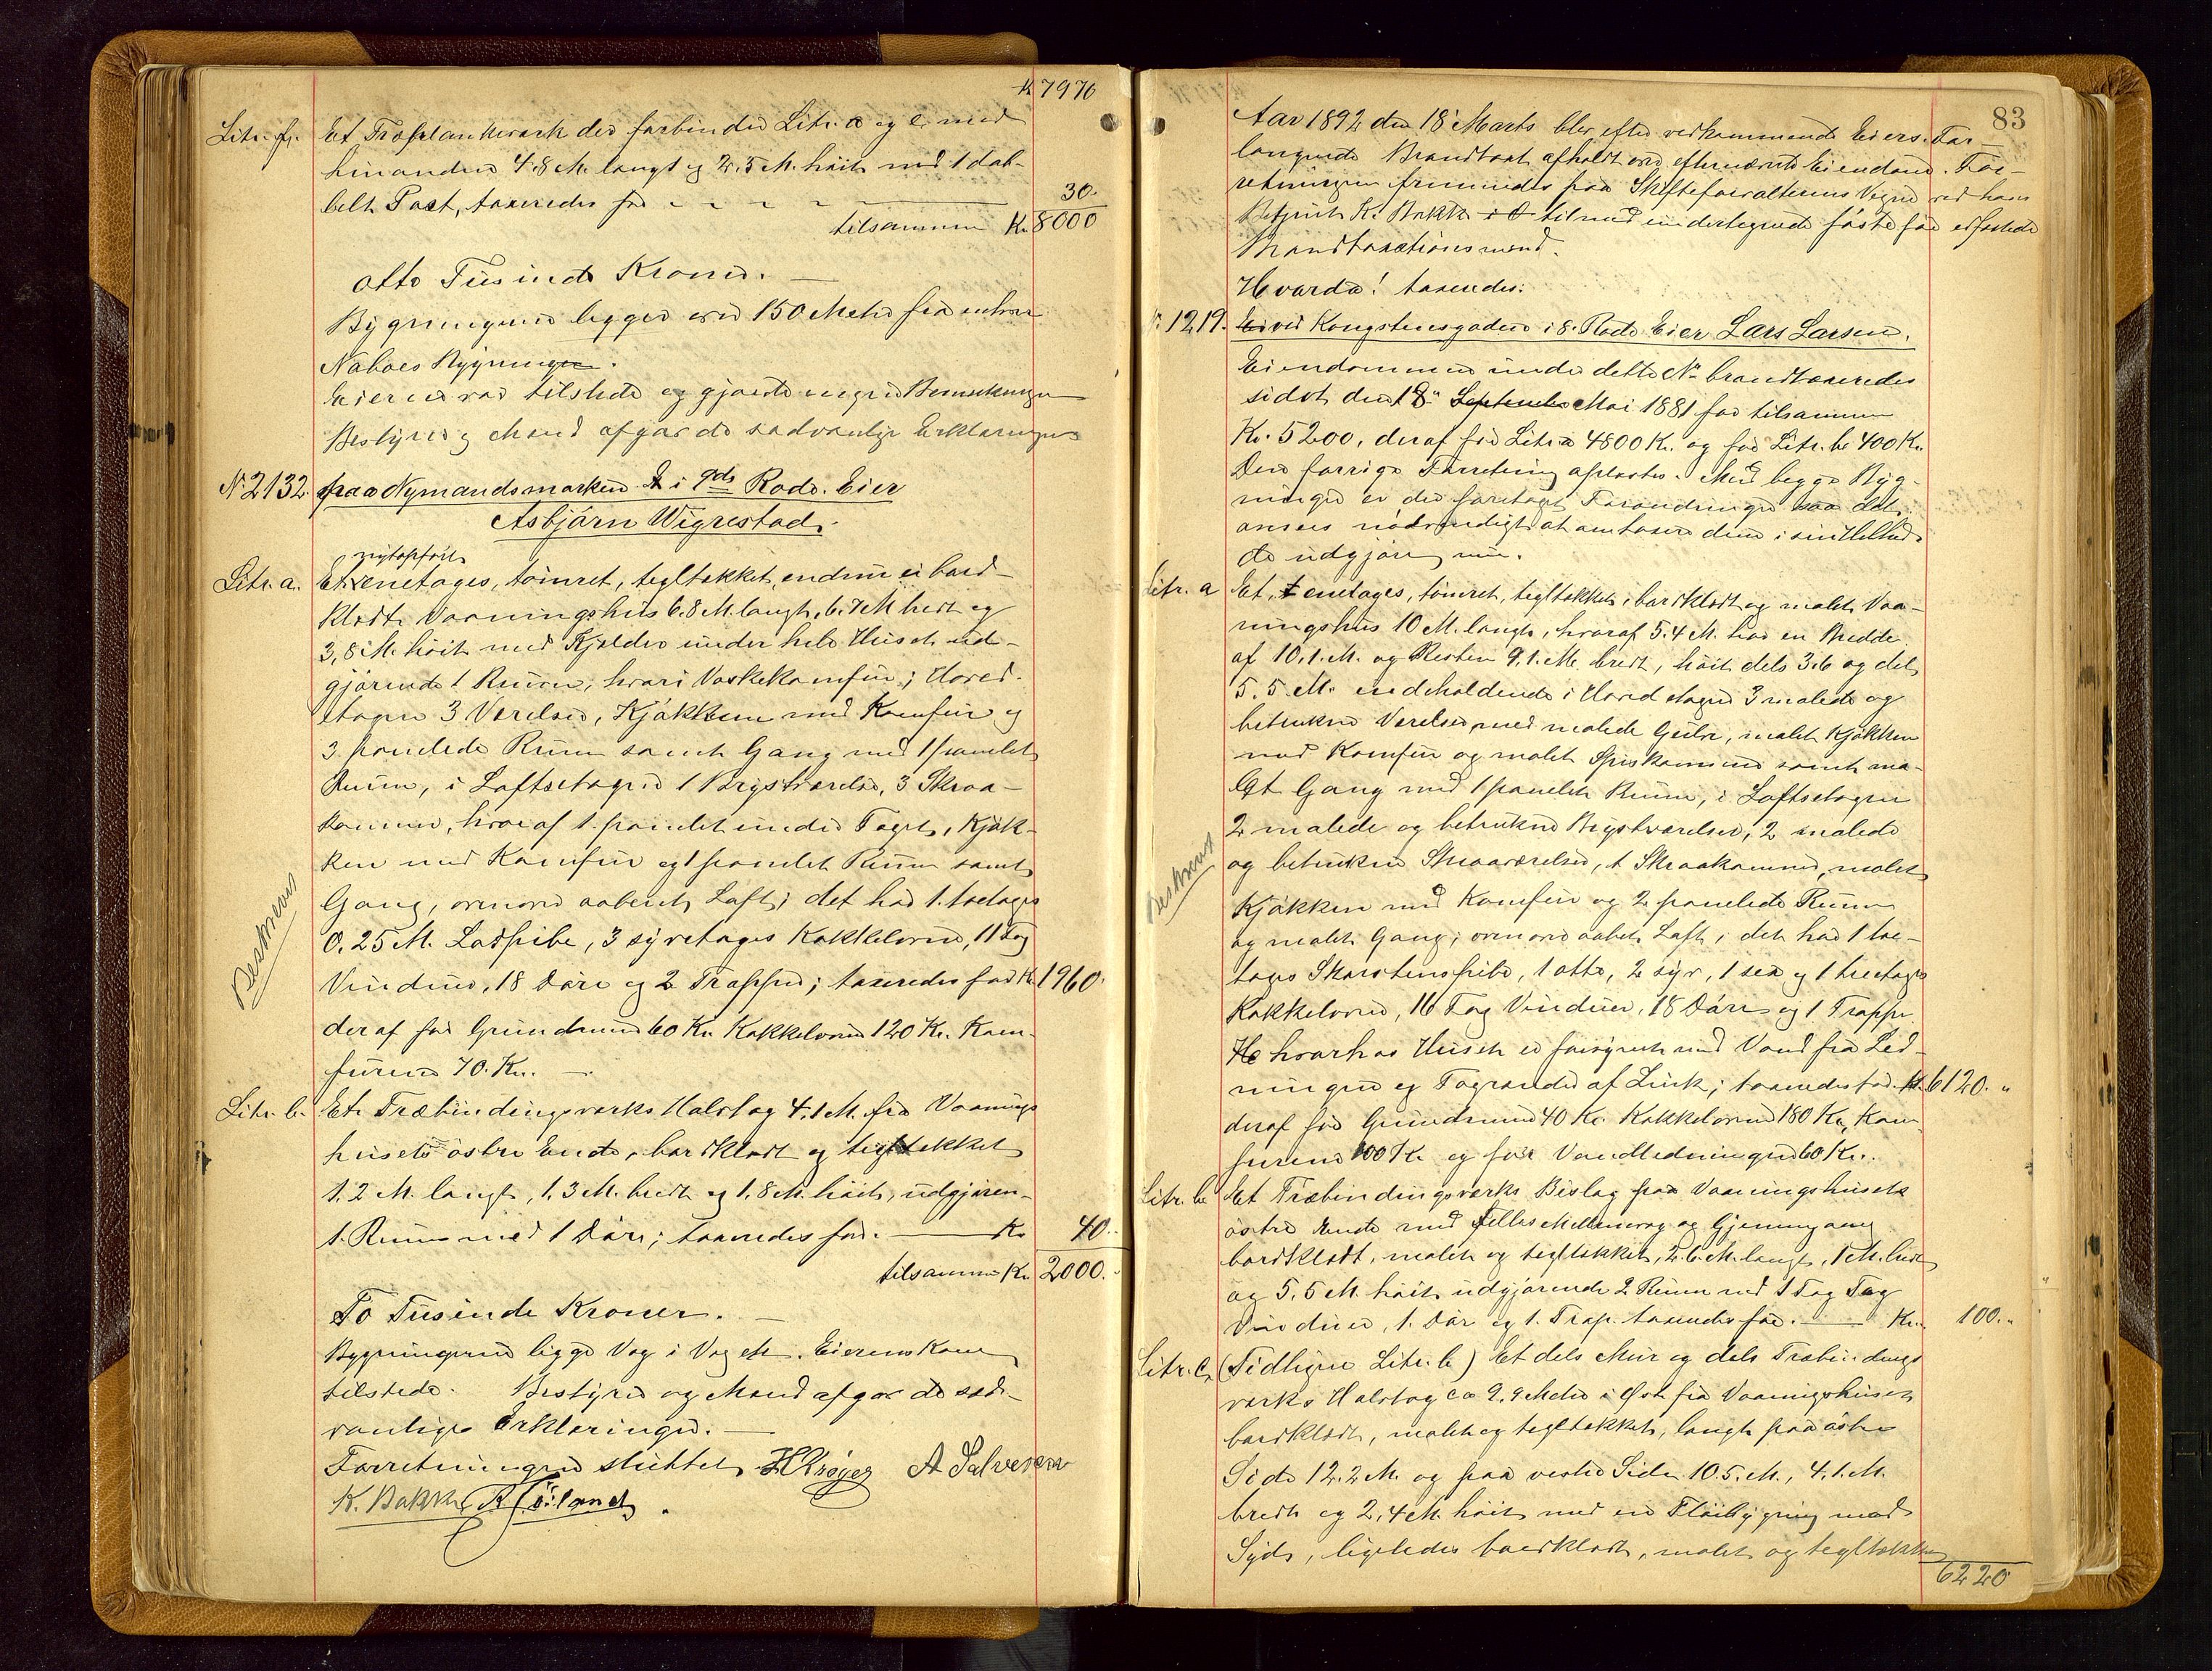 Kr 7976
Litr. f. Et Træplankeværk der forbinder Litr. a og e med
hinanden 4.8 M. langt og 2.5 M. höit med 1 dob-
belt Port, taxeredes for - - - - 30.
tilsammen Kr. 8000
Otte Tusinde Kroner. —
Bygningerne ligger over 150 Meter fra enhver
Naboes Bygninger.
Eieren var tilstede og gjorde ingen Bemerkninger
Bestyrer og Mænd afgav de sædvanlige Erklæringer
No 2132. paa Nymandsmarken i 9de Rode. Eier
Asbjörn Wigrestad.
nyopfört
Litr. a. Et enetages, tömret, tegltækket, endnu ei bord-
klædt Vaaningshus 6.8 M langt, 6.7 M bredt og
3,8 M. höit med Kjelder under hele Huset ud-
gjörende 1 Rum, hvori Vaskekomfur; i Hoved-
etagen 3 Værelser, Kjökken med Komfur og
3 panelede Rum samt Gang med 1 panelet
Rum, i Loftsetagen 1 Brystværelse, 3 Skraa-
kammer, hvoraf 1 panelet under Taget, Kjök-
ken med Komfur og 1 panelet Rum samt
Gang, ovenover aabent Loft; det har 1. toetages
0.25 M. Lodpibe, 3 syvetages Kakkelovne, 11 Fag
Vinduer, 18 Döre og 2 Trapper; taxeredes for Kr. 1960.
deraf for Grundmur 60 Kr. Kakkelovne 120 Kr. Kom-
furene 70. Kr. —
Beskrevet
Litr. b. Et Træbindingsværks Halvtag 4.1 M. fra Vaanings
husets östre Ende, bordklædt og tegltækket
1.2 M. langt, 1.3 M. bredt og 1.8 M. höit, udgjören-
1. Rum med 1 Dör; taxeredes for. — Kr. 40..
tilsammen Kr. 2000..
To Tusinde Kroner. —
Bygningerne ligge Væg i Væg Eieren kom
tilstede. Bestyrer og Mænd afgav de sæd-
vanlige Erklæringer. —
Forretningen sluttet HKröyer A Salvesen
K. Bakke
83
Aar 1892 den 18 Marts blev efter vedkommende Eiers For-
langende Brandtaxt afholdt over efternævnte Eiendom. For-
retningen fremmedes paa Skifteforvalterens Vegne ved hans
K. Bakke tilmed undertegnede faste for edfæstede
Brandtaxationsmænd.
Hvorda! taxeredes:
No. 1219. ved Kongstensgaden i 8. Rode Eier Lars Larsen.
Eiendommen under dette No brandtaxeredes
sidst den 18 Mai 1881 for tilsammen
Kr. 5200, deraf for Litr a 4800 Kr. og for Litr. b 400 Kr.
Den forrige Forretning oplæstes. Med begge Byg-
ninger er der foretaget Forandringer saa det
ansees nödvendigt at omtaxere dem i sin Helhed
de udgjöre nu.
Litr. a Et enetages, tömret, tegltækket, bordklædt og malet Vaa-
ningshus 10 M. langt, hvoraf 5.4 M. har en Bredde
af 10.1. M. og Resten 9.1. M. bredt, höit dels 3.6 og dels
5.5 M. indeholdende i Hovedetagen 3 malede og
betrukne Værelser med malede Gulve, malet Kjökken
med Komfur og malet Spiskammer samt ma-
let Gang med 1 panelet Rum, i Loftsetagen
2 malede og betrukne Brystværelser, 2 malede
og betrukne Skraaværelser, 1 Skraakammer, malet
Kjökken med Komfur og 2 panelede Rum
og malet Gang; ovenover aabent Loft; det har 1 toe-
tages Skorstenspibe, 1 otte, 2 syv, 1 sex og 1 treetages
Kakkelovne, 16 Fag Vinduer, 18 Döre og 1 Trappe.
hvorhos Huset er forsynet med Vand fra Led-
ningen og Tagrender af Zink; taxeredes for. Kr. 6120. "
deraf for Grundmur 40 Kr. Kakkelovne 180 Kr, Kom-
furene 100 Kr og for Vandledningen 60 Kr..
Beskrevet
Litr. b Et Træbindingsværks Bislag paa Vaaningshusets
östre Ende med fælles Mellemvæg og Gjennemgang
bordklædt, malet og tegltækket, 2.6. M. langt, 1 M. bredt
og 5.5 M. höit udgjörende 2 Rum med 1 Fag
Vinduer, 1. Dör og 1. Trap. taxeredes for. — Kr. 100."
Litr. c. (Tidligere Litr. b) Et dels Mur og dels Træbindings
værks Halvtag ca 9.9 Meter i Öst fra Vaaningshuset
bordklædt, malet og tegltækket, langt paa östre
Side 12.2 M. og paa vestre Side 10.5. M., 4.1. M.
bredt og 2.4 M. höit med en Flöibygning mod
Syd, ligeledes bordklædt, malet og tegltækket
6220